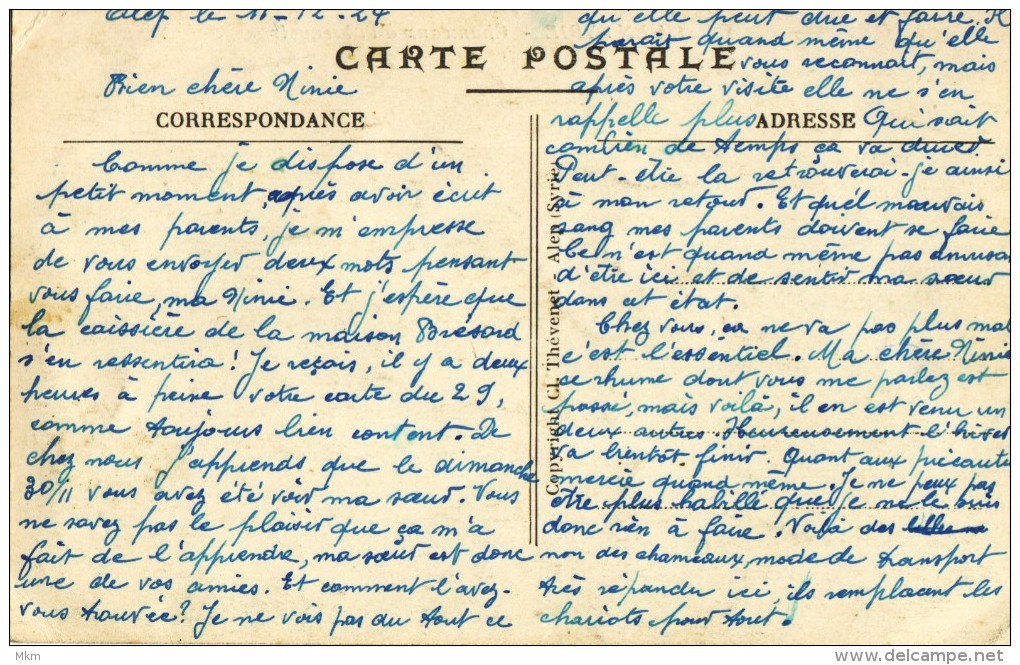 Alep le 11-12-24
CARTE POSTALE
Bien chère Ninie
CORRESPONDANCE
Comme je dispose d'un
petit moment, après avoir écrit
à mes parents, je m'empresse
de vous envoyer deux mots pensant
vous faire, ma Ninie. Et j'espère que
la caissière de la maison Brésard
s'en ressentira! Je reçois, il y a deux
heures à peine votre carte du 29,
comme toujours bien content. De
chez nous j'apprends que le dimanche
30/11 vous avez été voir ma sœur. Vous
ne savez pas le plaisir que ça m'a
fait de l'apprendre, ma sœur est donc
une de vos amies. Et comment l'avez-
vous trouvée? Je ne vois pas du tout ce
qu'elle peut dire et faire. Il
parait quand même qu'elle
vous reconnait, mais
après votre visite elle ne s'en
rappelle plus Qui sait
ADRESSE
combien de temps ça va durer.
Peut-être la retrouverai-je ainsi
à mon retour. Et quel mauvais
sang mes parents doivent se faire
Ce n'est quand même pas amusant
d'être ici et de sentir ma sœur
dans cet état.
Chez vous, ça ne va pas plus mal
c'est l'essentiel. Ma chère Ninie
ce rhume dont vous me parlez est
passé, mais voilà, il en est venu un
deux autres Heureusement l'hiver
va bientôt finir. Quant aux précautions
merci quand même. Je ne peux pas
être plus habillé que je ne le suis
donc rien à faire. Voilà des
non des chameaux, mode de transport
très répandu ici, ils remplacent les
chariots pour tout.
Copyright Cl. Thévenet - Alep (Syrie)
Mkm
delcampe.net